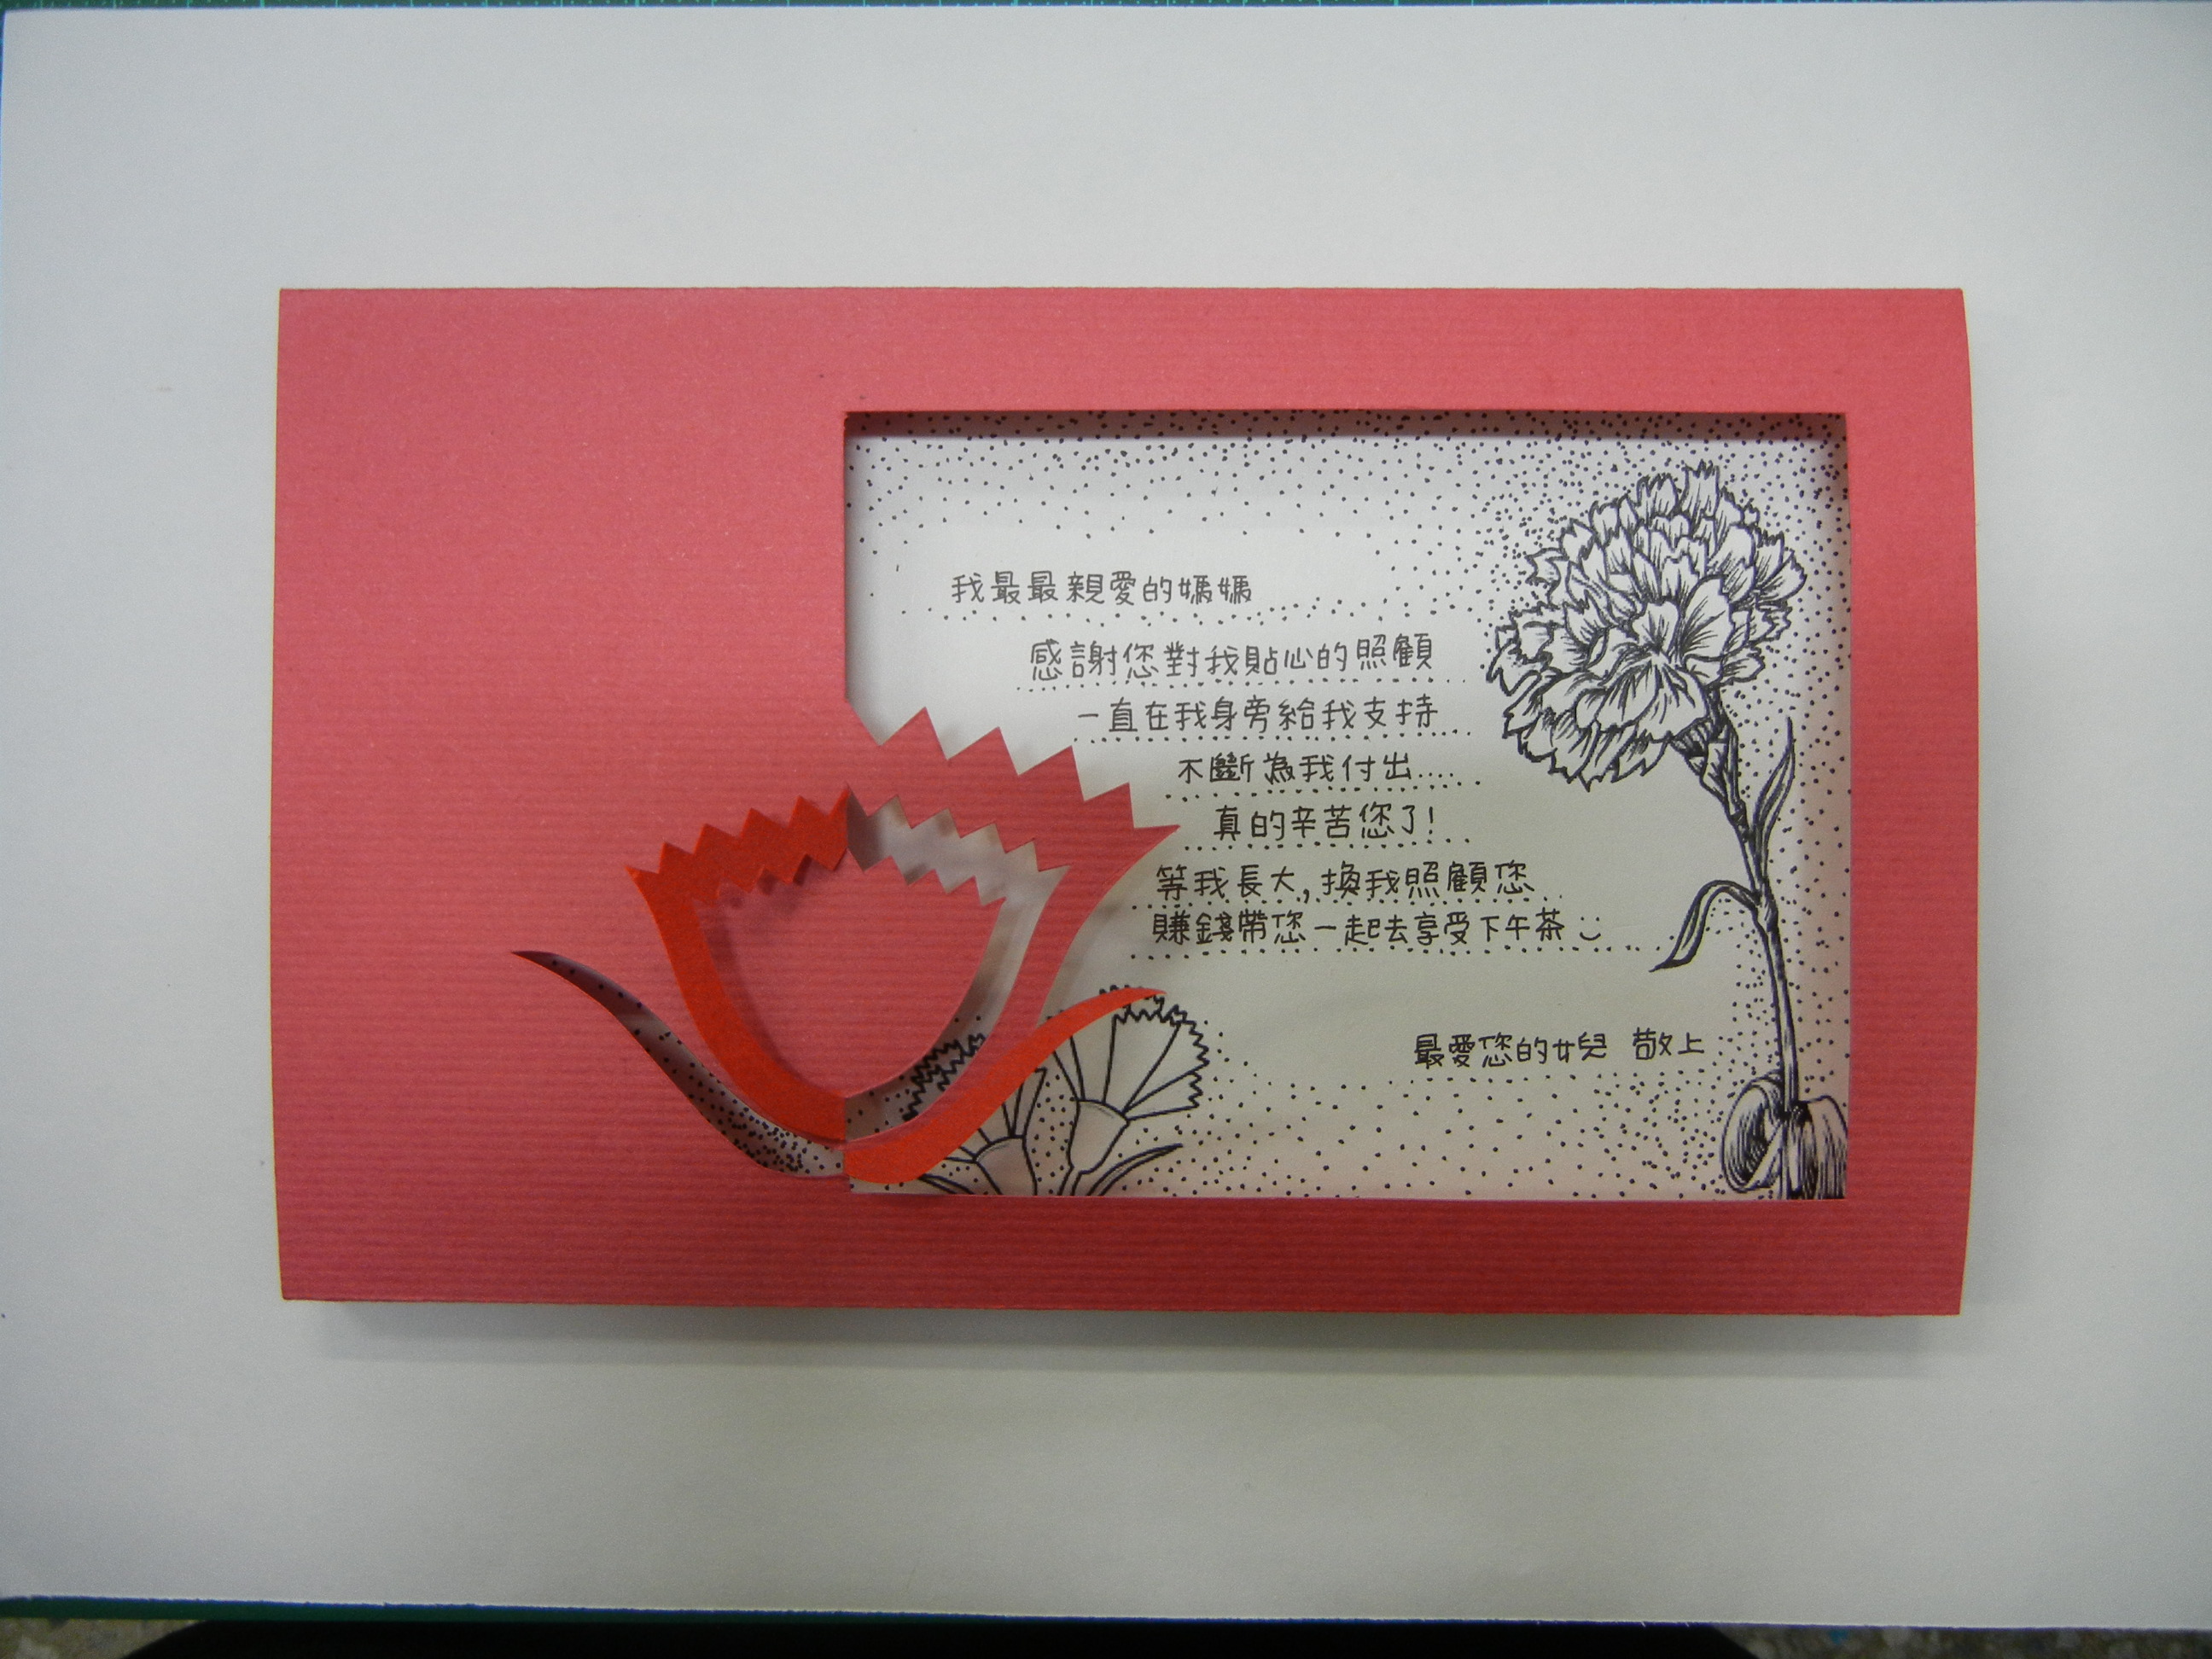 我最最親愛的媽媽
感謝您對我貼心的照顧
一直在我身旁給我支持
不斷為我付出....
真的辛苦您了!
等我長大,換我照顧您
賺錢帶您一起去享受下午茶
最愛您的女兒 敬上